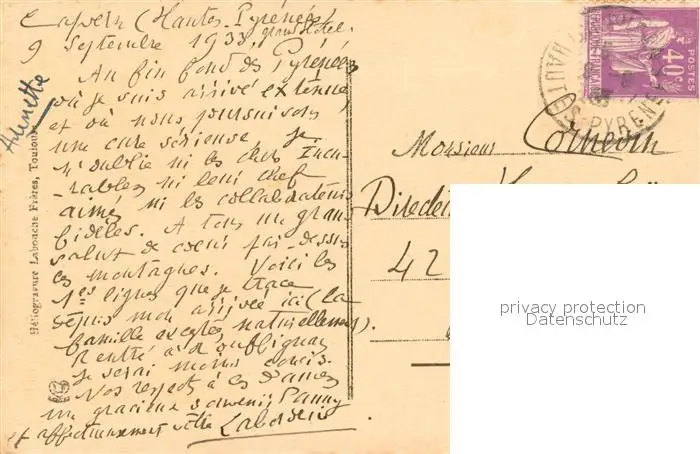 Capvern (Hautes-Pyrénées)
9 Septembre 1933, grand Hôtel.
Au fin fond des Pyrénées
où je suis arrivé exténué
et où nous poursuivons
une cure sérieuse je
n'oublie ni les chers Incu-
rables ni leur chef
aimé ni les collaborateurs
fidèles. A tous un grand
salut de coeur par-dessus
les montagnes. Voici les
1res lignes que je trace
depuis mon arrivée ici (la
famille exceptée naturellement).
Rentré à
je serai moins concis.
Nos respects à ces Dames
un gracieux souvenir
et affectueusement vôtre
Héliogravure Labouche Frères, Toulouse
POSTES
40c
REPUBLIQUE FRANÇAISE
HAUTES-PYRENEES
Monsieur
42
privacy protection
Datenschutz